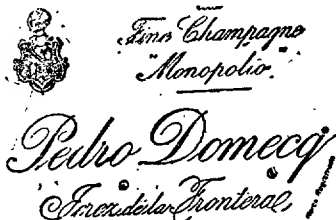 Fine Champagne
"Monopolio"
Pedro Domecq
Jerez de la Frontera